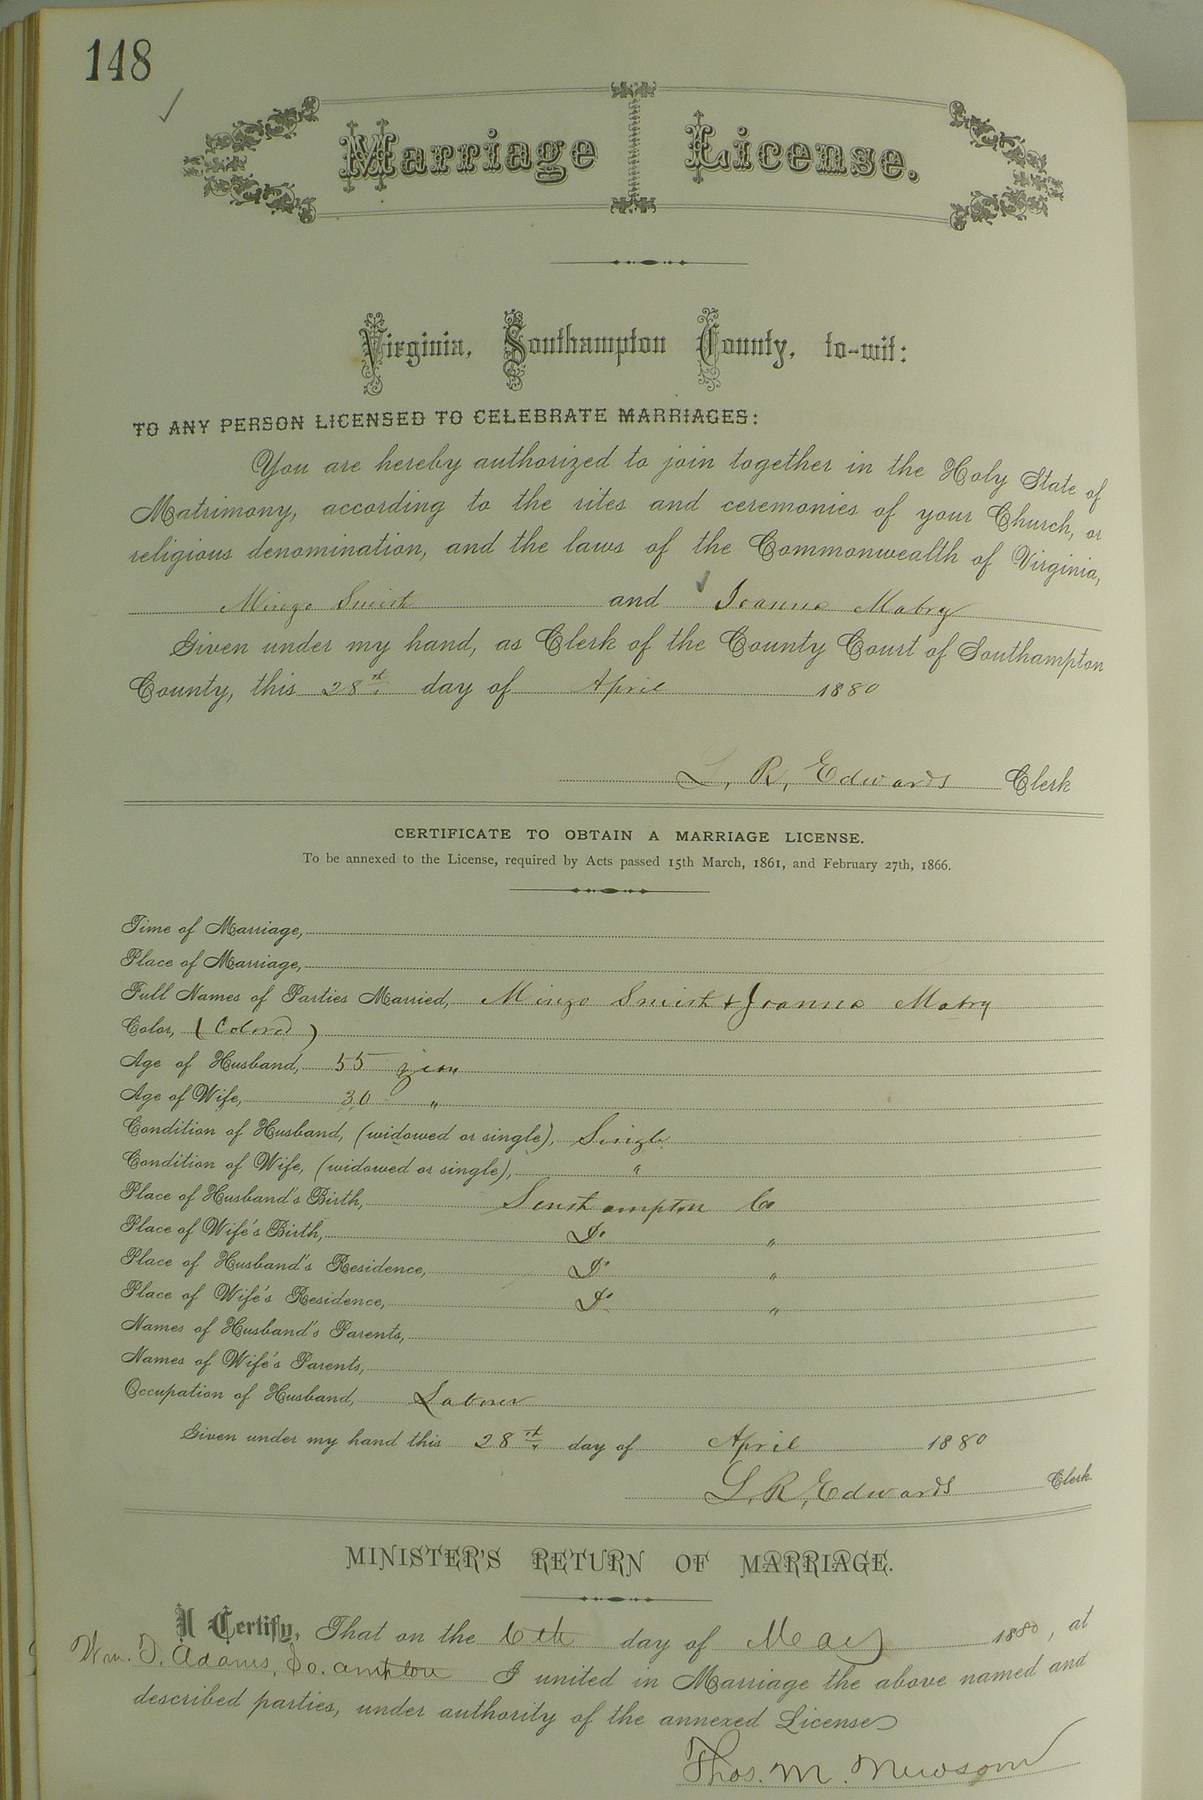 148
Marriage License.
Virginia, Southampton County, to-wit:
TO ANY PERSON LICENSED TO CELEBRATE MARRIAGES:
You are hereby authorized to join together in the Holy State of
Matrimony, according to the rites and ceremonies of your Church, or
religious denomination, and the laws of the Commonwealth of Virginia,
Mingo and Joanna Mabry
Given under my hand, as Clerk of the County Court of Southampton
County, this 28th day of April 1880
L. R. Edwards Clerk
CERTIFICATE TO OBTAIN A MARRIAGE LICENSE.
To be annexed to the License, required by Acts passed 15th March, 1861, and February 27th, 1866.
Time of Marriage,
Place of Marriage,
Full Names of Parties Married, Mingo & Joanna Mabry
Color, (Colored)
Age of Husband, 55 years
Age of Wife, 30 "
Condition of Husband, (widowed or single), Single
Condition of Wife, (widowed or single), "
Place of Husband's Birth, Southampton Co
Place of Wife's Birth, Do "
Place of Husband's Residence, Do "
Place of Wife's Residence, Do "
Names of Husband's Parents,
Names of Wife's Parents,
Occupation of Husband, Laborer
Given under my hand this 28th day of April 1880
L. R. Edwards Clerk
MINISTER'S RETURN OF MARRIAGE.
I Certify, That on the 6th day of May 1880, at
Wm. D. Adams, So.ampton I united in Marriage the above named and
described parties, under authority of the annexed License
Thos. M. Newsom